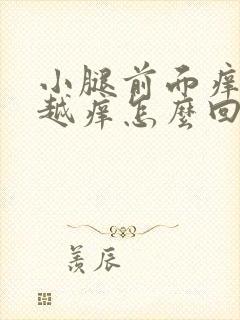 小腿前而痒
越痒怎麼回
羨辰